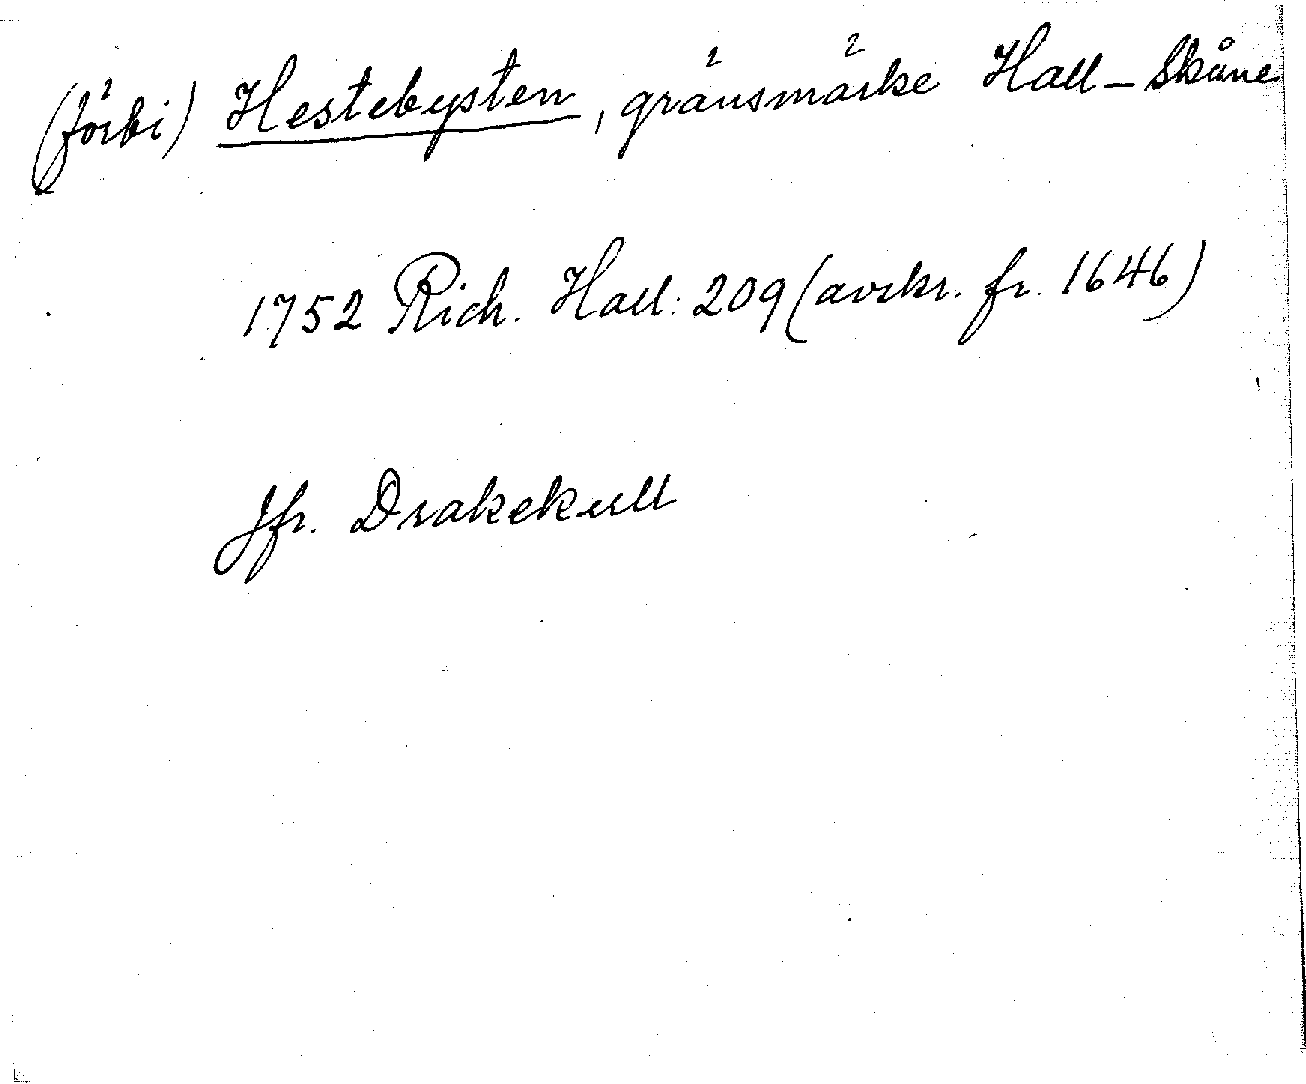 (förbi) Hestebysten, gränsmärke Hall-Skåne
1752 Rich. Hall: 209 (avskr. fr. 1646)
Jfr. Drakekull